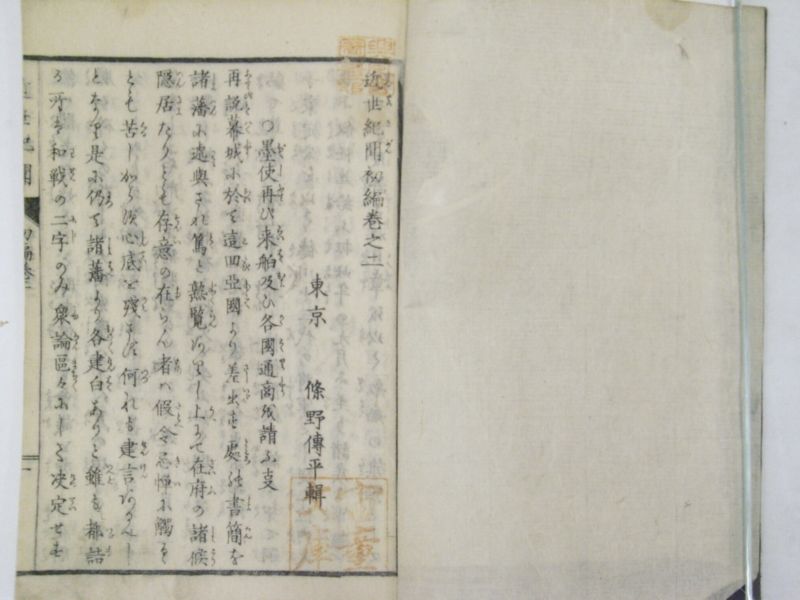 近世紀聞初編巻之二
東京　條野傳平輯
○墨使再び来舶及び各國通商を請ふ支
再説幕城に於て這回亞國より差出す處の書簡を
諸藩に遞與され篤と熟覧ありし上にて在府の諸侯
隠居たりとも存意の在らん者ハ假令忌憚に觸る
とも苦しからず心底を残さず何れも建言あるべし
となり是に仍て諸藩より各建白ありと雖も都詰
る所ハ和戦の二字のみ衆論區々にして决定せず
初編巻二